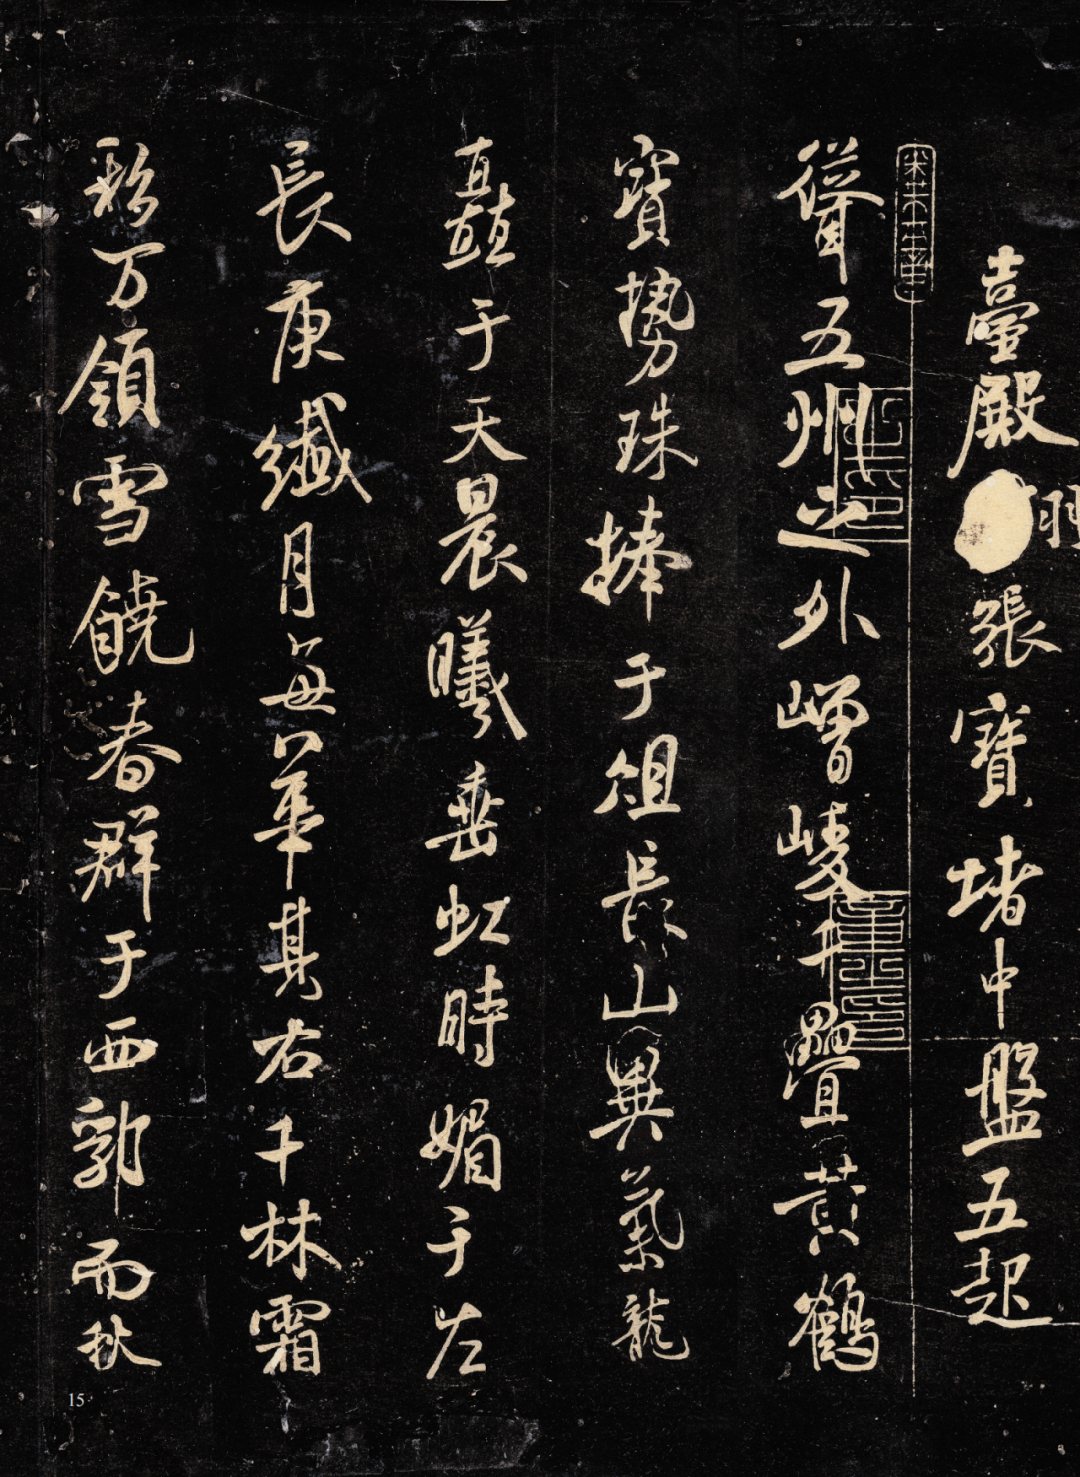 臺殿羽張寶堵中盤五起
聳五州之外嶒崚再疊黃鶴
寶勢珠捧于俎長山異氣龍
矗于天晨曦垂虹時媚于左
長庚纖月每華其右千林霜
移万領雪饒春群于西郭而秋
15